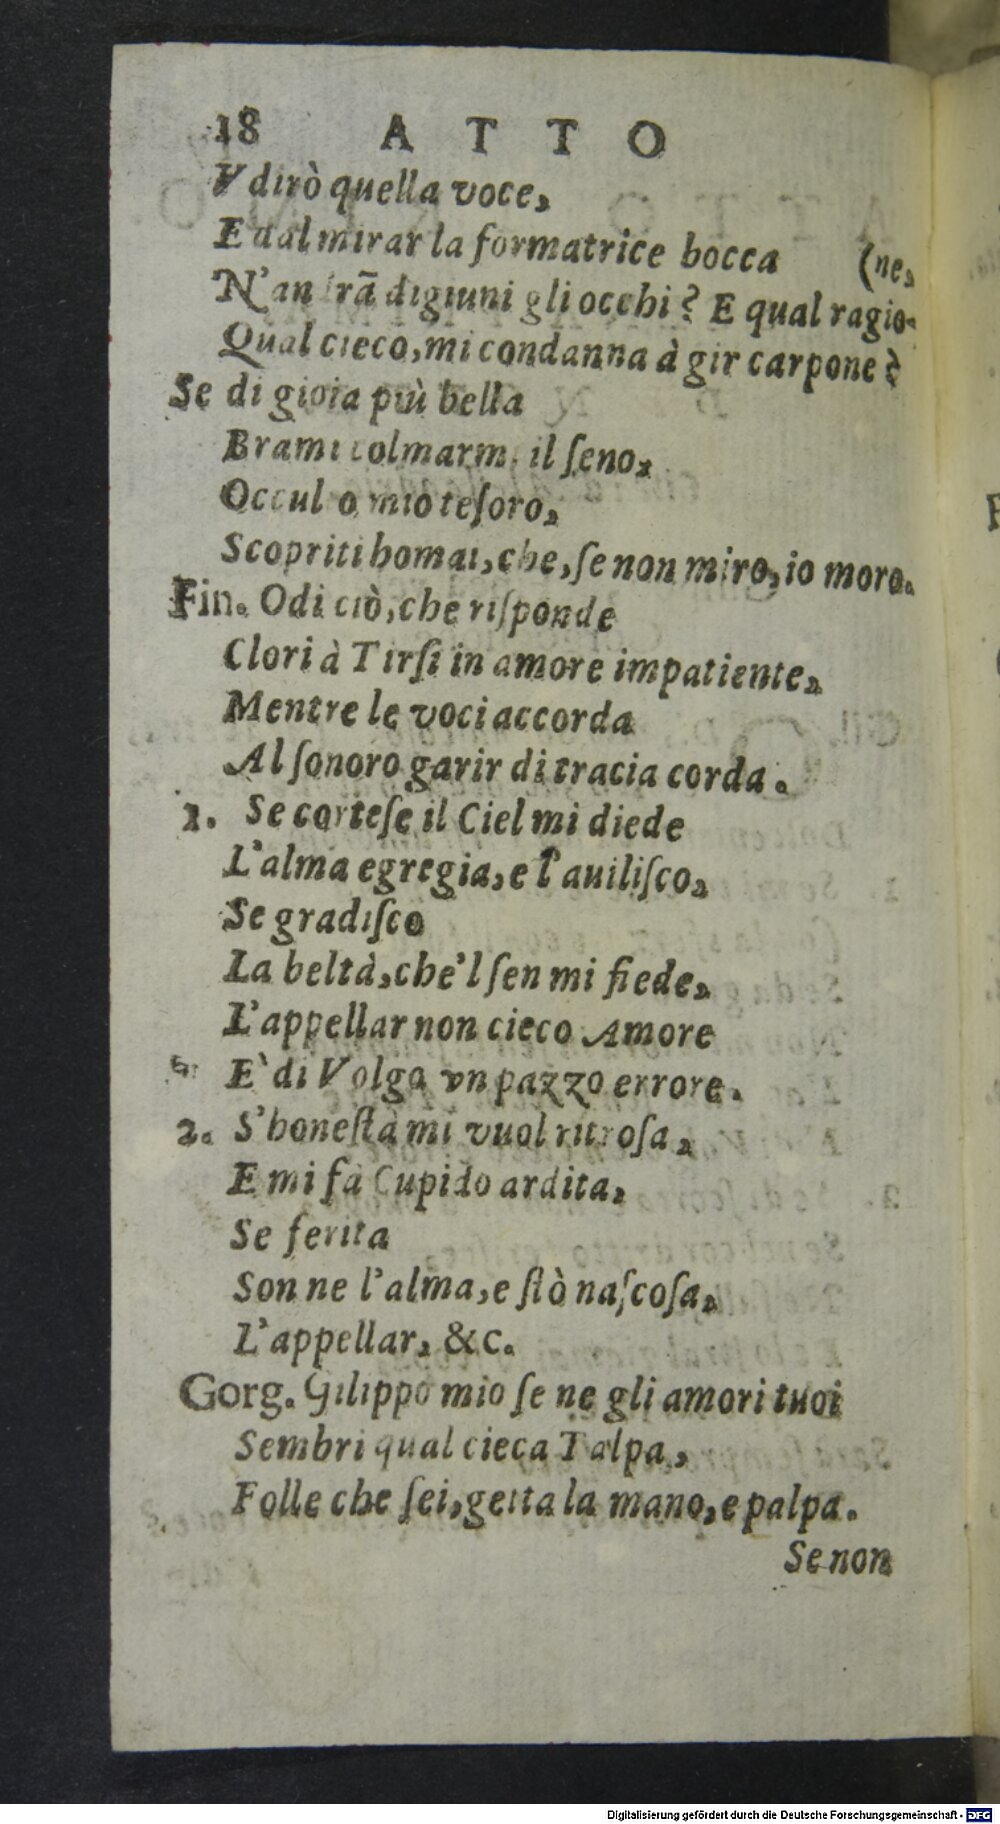 18 ATTO
Vdirò quella voce,
E dal mirar la formatrice bocca (ne,
N'antrã digiuni gli occhi? E qual ragio-
Qual cieco, mi condanna à gir carpone?
Se di gioia più bella
Brami colmarmi il ſeno,
Occulto mio teſoro,
Scopriti homai, che, ſe non miro, io moro.
Fin. Odi ciò, che riſponde
Clori à Tirſi in amore impatiente,
Mentre le voci accorda
Al ſonoro garir di tracia corda.
1. Se corteſe il Ciel mi diede
L'alma egregia, e l'auiliſco,
Se gradiſco
La beltà, che'l ſen mi fiede,
L'appellar non cieco Amore
E' di Volgo vn pazzo errore.
2. S'honeſtà mi vuol ritroſa,
E mi fà Cupido ardita,
Se ferita
Son ne l'alma, e ſtò naſcoſa,
L'appellar, &c.
Gorg. Gilippo mio ſe ne gli amori tuoi
Sembri qual cieca Talpa,
Folle che ſei, getta la mano, e palpa.
Se non
Digitalisierung gefördert durch die Deutsche Forschungsgemeinschaft - DFG